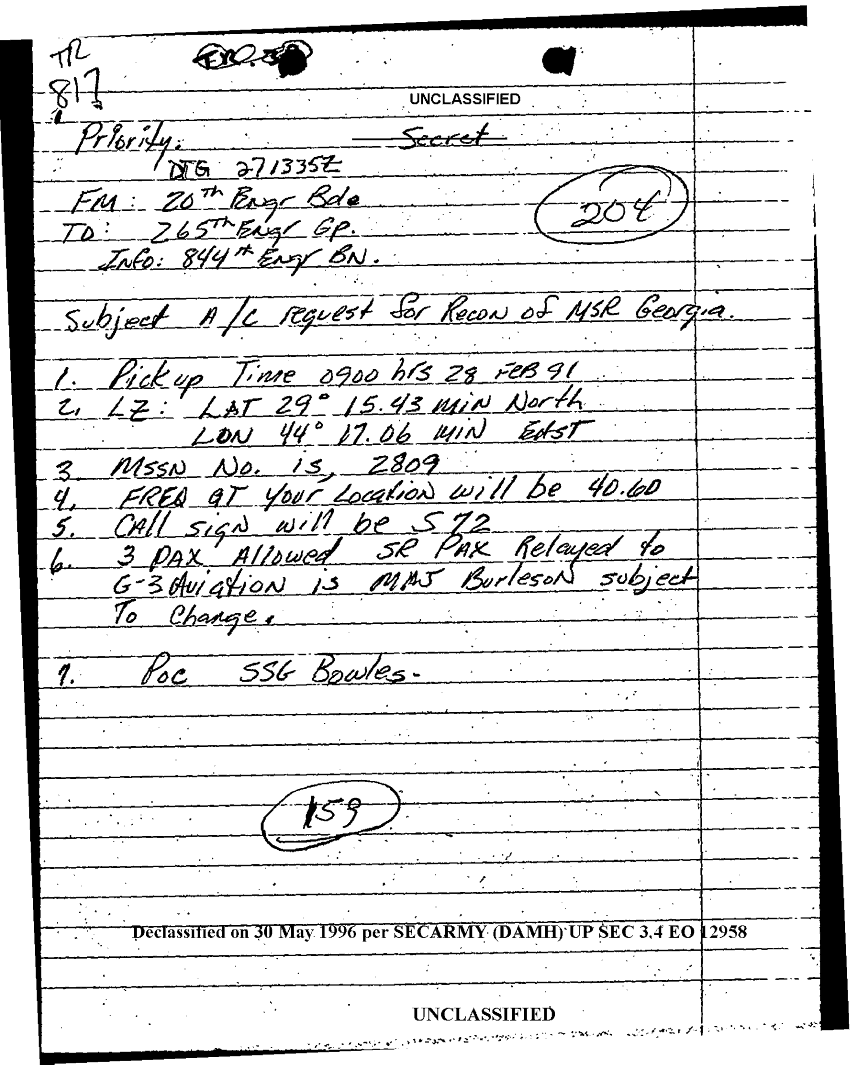 TR
817
UNCLASSIFIED
Priority:
Secret
DTG 271335Z
FM: 20th Engr Bde
204
TO: 265th Engr Gp.
Info: 844th Engr BN.
Subject A/C request for Recon of MSR Georgia.
1. Pick up Time 0900 hrs 28 FEB 91
2. LZ: LAT 29° 15.43 min North
LON 44° 17.06 MIN EAST
3 MSSN No. is, 2809
4. FREQ at your Location will be 40.60
5. Call sign will be S72
6. 3 PAX Allowed SR PAX Relayed to
G-3 Aviation is MAJ Burleson subject
To Change.
7. Poc SSG Bowles.
159
Declassified on 30 May 1996 per SECARMY (DAMH) UP SEC 3.4 EO 12958
UNCLASSIFIED